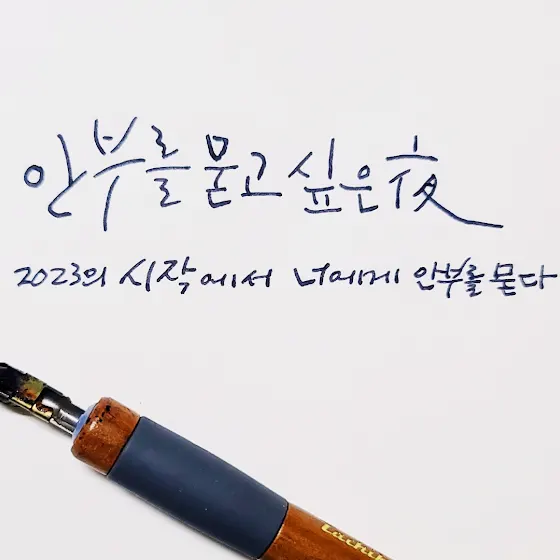 안부를 묻고 싶은 夜
2023의 시작에서 너에게 안부를 묻다